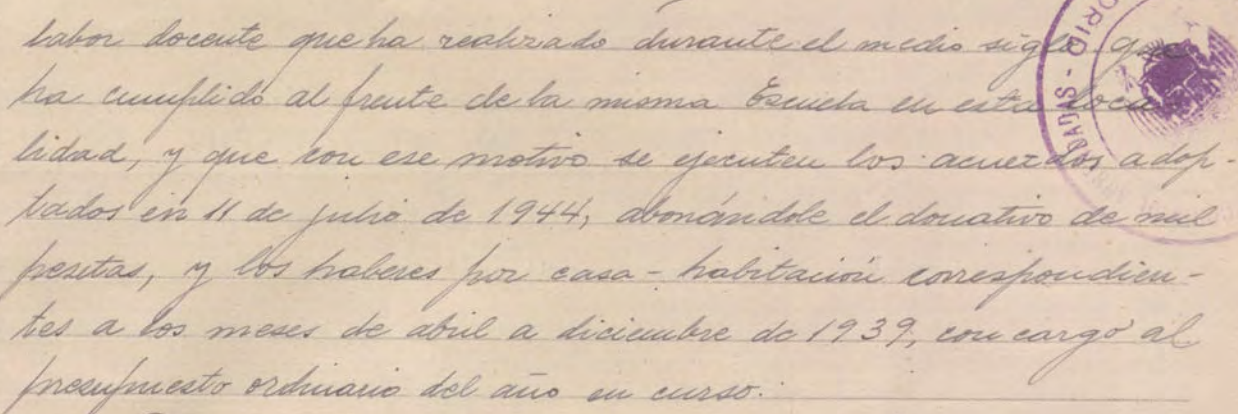 labor docente que ha realizado durante el medio siglo que
ha cumplido al frente de la misma Escuela en esta loca
lidad, y que con ese motivo se ejecuten los acuerdos adop-
tados en 11 de julio de 1944, abonándole el donativo de mil
pesetas, y los haberes por casa-habitación correspondien-
tes a los meses de abril a diciembre de 1939, con cargo al
presupuesto ordinario del año en curso.